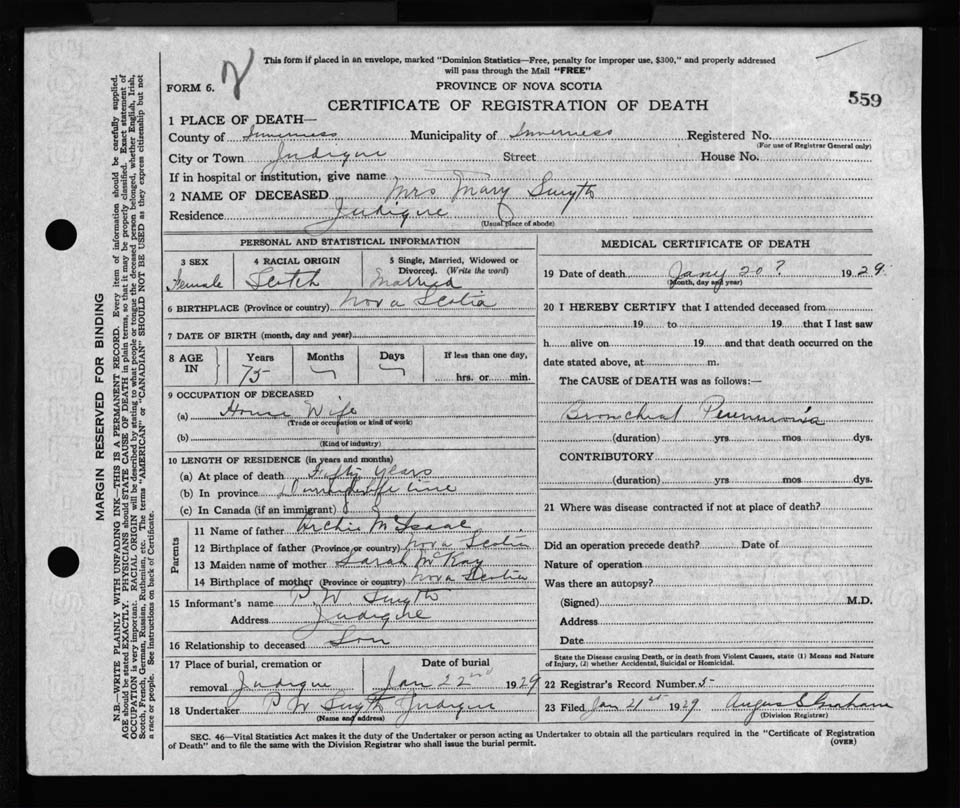 This form if placed in an envelope, marked "Dominion Statistics—Free, penalty for improper use, $300," and properly addressed
will pass through the Mail "FREE"
FORM 6.
PROVINCE OF NOVA SCOTIA
CERTIFICATE OF REGISTRATION OF DEATH
559
1 PLACE OF DEATH—
County of Inverness Municipality of Inverness Registered No.
(For use of Registrar General only)
City or Town Judique Street House No.
If in hospital or institution, give name
2 NAME OF DECEASED Mrs Mary Smyth
Residence Judique
(Usual place of abode)
PERSONAL AND STATISTICAL INFORMATION
3 SEX 4 RACIAL ORIGIN 5 Single, Married, Widowed or
Divorced. (Write the word)
Female Scotch Married
6 BIRTHPLACE (Province or country) Nova Scotia
7 DATE OF BIRTH (month, day and year)
8 AGE IN Years Months Days If less than one day,
75 hrs. or min.
9 OCCUPATION OF DECEASED
(a) House Wife
(Trade or occupation or kind of work)
(b)
(Kind of industry)
10 LENGTH OF RESIDENCE (in years and months)
(a) At place of death Fifty Years
(b) In province time
(c) In Canada (if an immigrant)
Parents
11 Name of father Archie McIsaac
12 Birthplace of father (Province or country) Nova Scotia
13 Maiden name of mother Sarah McKay
14 Birthplace of mother (Province or country) Nova Scotia
15 Informant's name P W Smyth
Address Judique
16 Relationship to deceased Son
17 Place of burial, cremation or Date of burial
removal Judique Jan 22nd 1929
18 Undertaker P W Smyth Judique
(Name and address)
MEDICAL CERTIFICATE OF DEATH
19 Date of death Jany 20? 1929
(Month, day and year)
20 I HEREBY CERTIFY that I attended deceased from
19 to 19 that I last saw
h alive on 19 and that death occurred on the
date stated above, at m.
The CAUSE of DEATH was as follows:—
Bronchial Penumonia
(duration) yrs. mos. dys.
CONTRIBUTORY
(duration) yrs. mos. dys.
21 Where was disease contracted if not at place of death?
Did an operation precede death? Date of
Nature of operation
Was there an autopsy?
(Signed) M.D.
Address
Date
State the Disease causing Death, or in death from Violent Causes, state (1) Means and Nature
of Injury, (2) whether Accidental, Suicidal or Homicidal.
22 Registrar's Record Number 5
23 Filed Jan 21st 1929 Angus S Graham
(Division Registrar)
SEC. 46—Vital Statistics Act makes it the duty of the Undertaker or person acting as Undertaker to obtain all the particulars required in the "Certificate of Registration
of Death" and to file the same with the Division Registrar who shall issue the burial permit.
(OVER)
MARGIN RESERVED FOR BINDING
N.B.—WRITE PLAINLY WITH UNFADING INK—THIS IS A PERMANENT RECORD. Every item of information should be carefully supplied.
AGE should be stated EXACTLY. PHYSICIANS should STATE CAUSE OF DEATH in plain terms, so that it may be properly classified. Exact statement of
OCCUPATION is very important. RACIAL ORIGIN will be described by stating to what people or tongue the deceased person belonged, whether English, Irish,
Scotch, French, German, Russian, Ruthenian, etc. The terms "AMERICAN" or "CANADIAN" SHOULD NOT BE USED as they express citizenship but not
a race or people. See instructions on back of Certificate.